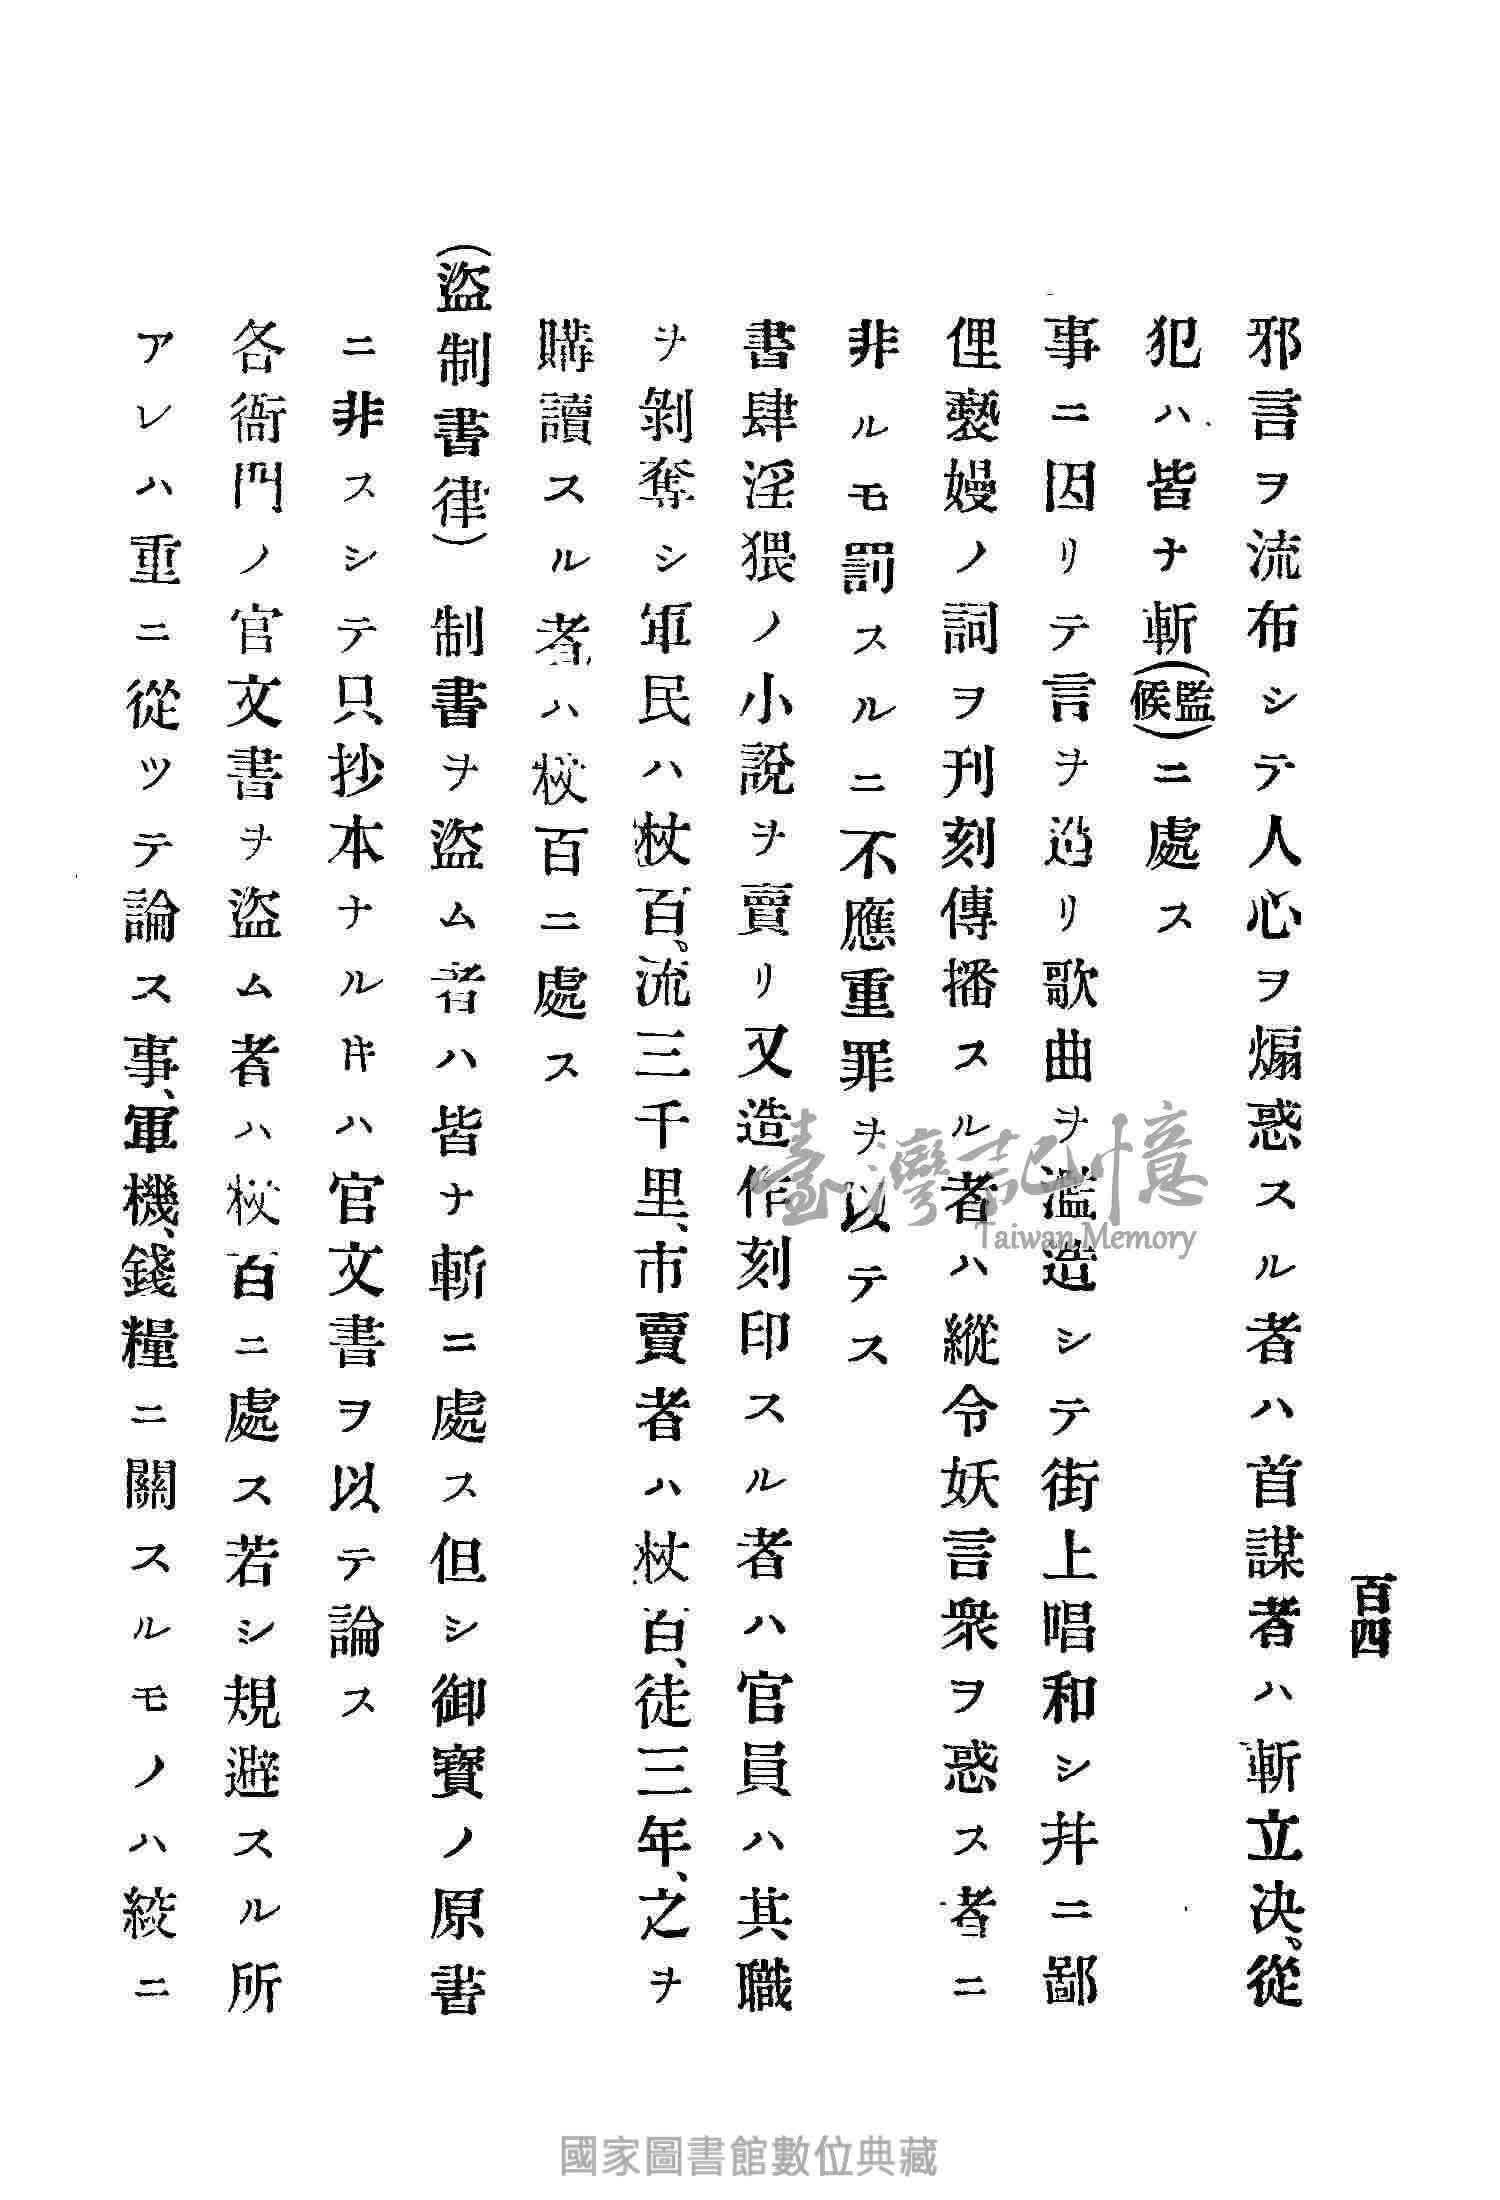 百四
邪言ヲ流布シテ人心ヲ煽惑スル者ハ首謀者ハ斬立決、從
犯ハ皆ナ斬(監候)ニ處ス
事ニ因リテ言ヲ造リ歌曲ヲ濫造シテ街上唱和シ幷ニ鄙
俚褻嫚ノ詞ヲ刋刻傳播スル者ハ縱令妖言衆ヲ惑ス者ニ
非ルモ罰スルニ不應重罪ヲ以テス
書肆淫猥ノ小說ヲ賣リ又造作刻印スル者ハ官員ハ其職
ヲ剝奪シ軍民ハ杖百、流三千里、市賣者ハ杖百、徒三年、之ヲ
購讀スル者ハ杖百ニ處ス
(盜制書律)制書ヲ盜ム者ハ皆ナ斬ニ處ス但シ御寶ノ原書
ニ非スシテ只抄本ナルキハ官文書ヲ以テ論ス
各衙門ノ官文書ヲ盜ム者ハ杖百ニ處ス若シ規避スル所
アレハ重ニ從ッテ論ス事、軍機、錢糧ニ關スルモノハ絞ニ
臺灣記憶
Taiwan Memory
國家圖書館數位典藏